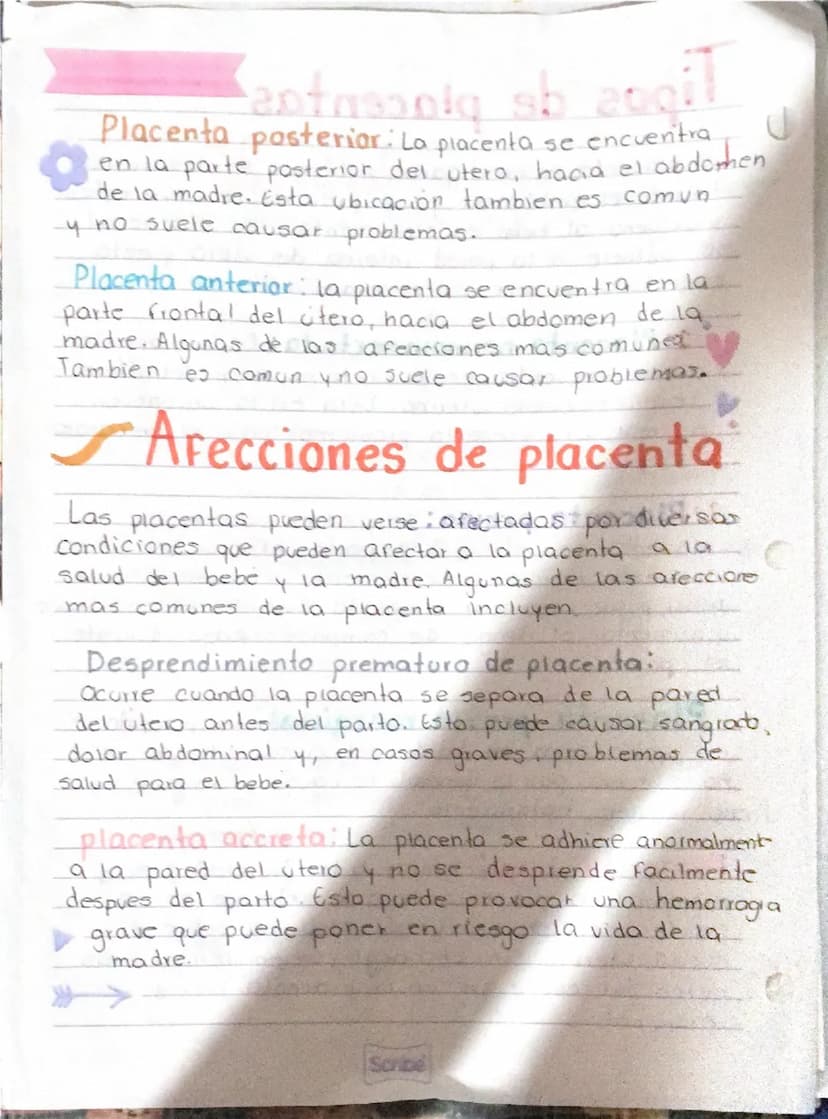 Tipos de placentas
Placenta posterior: La placenta se encuentra
en la parte posterior del utero, hacia el abdomen
de la madre. Esta ubicación tambien es comun
y no suele causar problemas.
Placenta anterior: la placenta se encuentra en la
parte frontal del útero, hacia el abdomen de la
madre. Algunas de las afecciones mas comunes
Tambien es comun y no suele causar problemas.
Afecciones de placenta
Las placentas pueden verse afectadas por diversas
condiciones que pueden afectar a la placenta a la
salud del bebe y la madre. Algunas de las afeccione
mas comunes de la placenta incluyen
Desprendimiento prematuro de placenta:
Ocurre cuando la placenta se separa de la pared
del utero antes del parto. Esto puede causar sangrado,
dolor abdominal y, en casos graves, problemas de
salud para el bebe.
placenta accreta: La placenta se adhiere anormalment
a la pared del utero y no se desprende facilmente
despues del parto. Esto puede provocar una hemorragia
grave que puede poner en riesgo la vida de la
madre.
Scribe